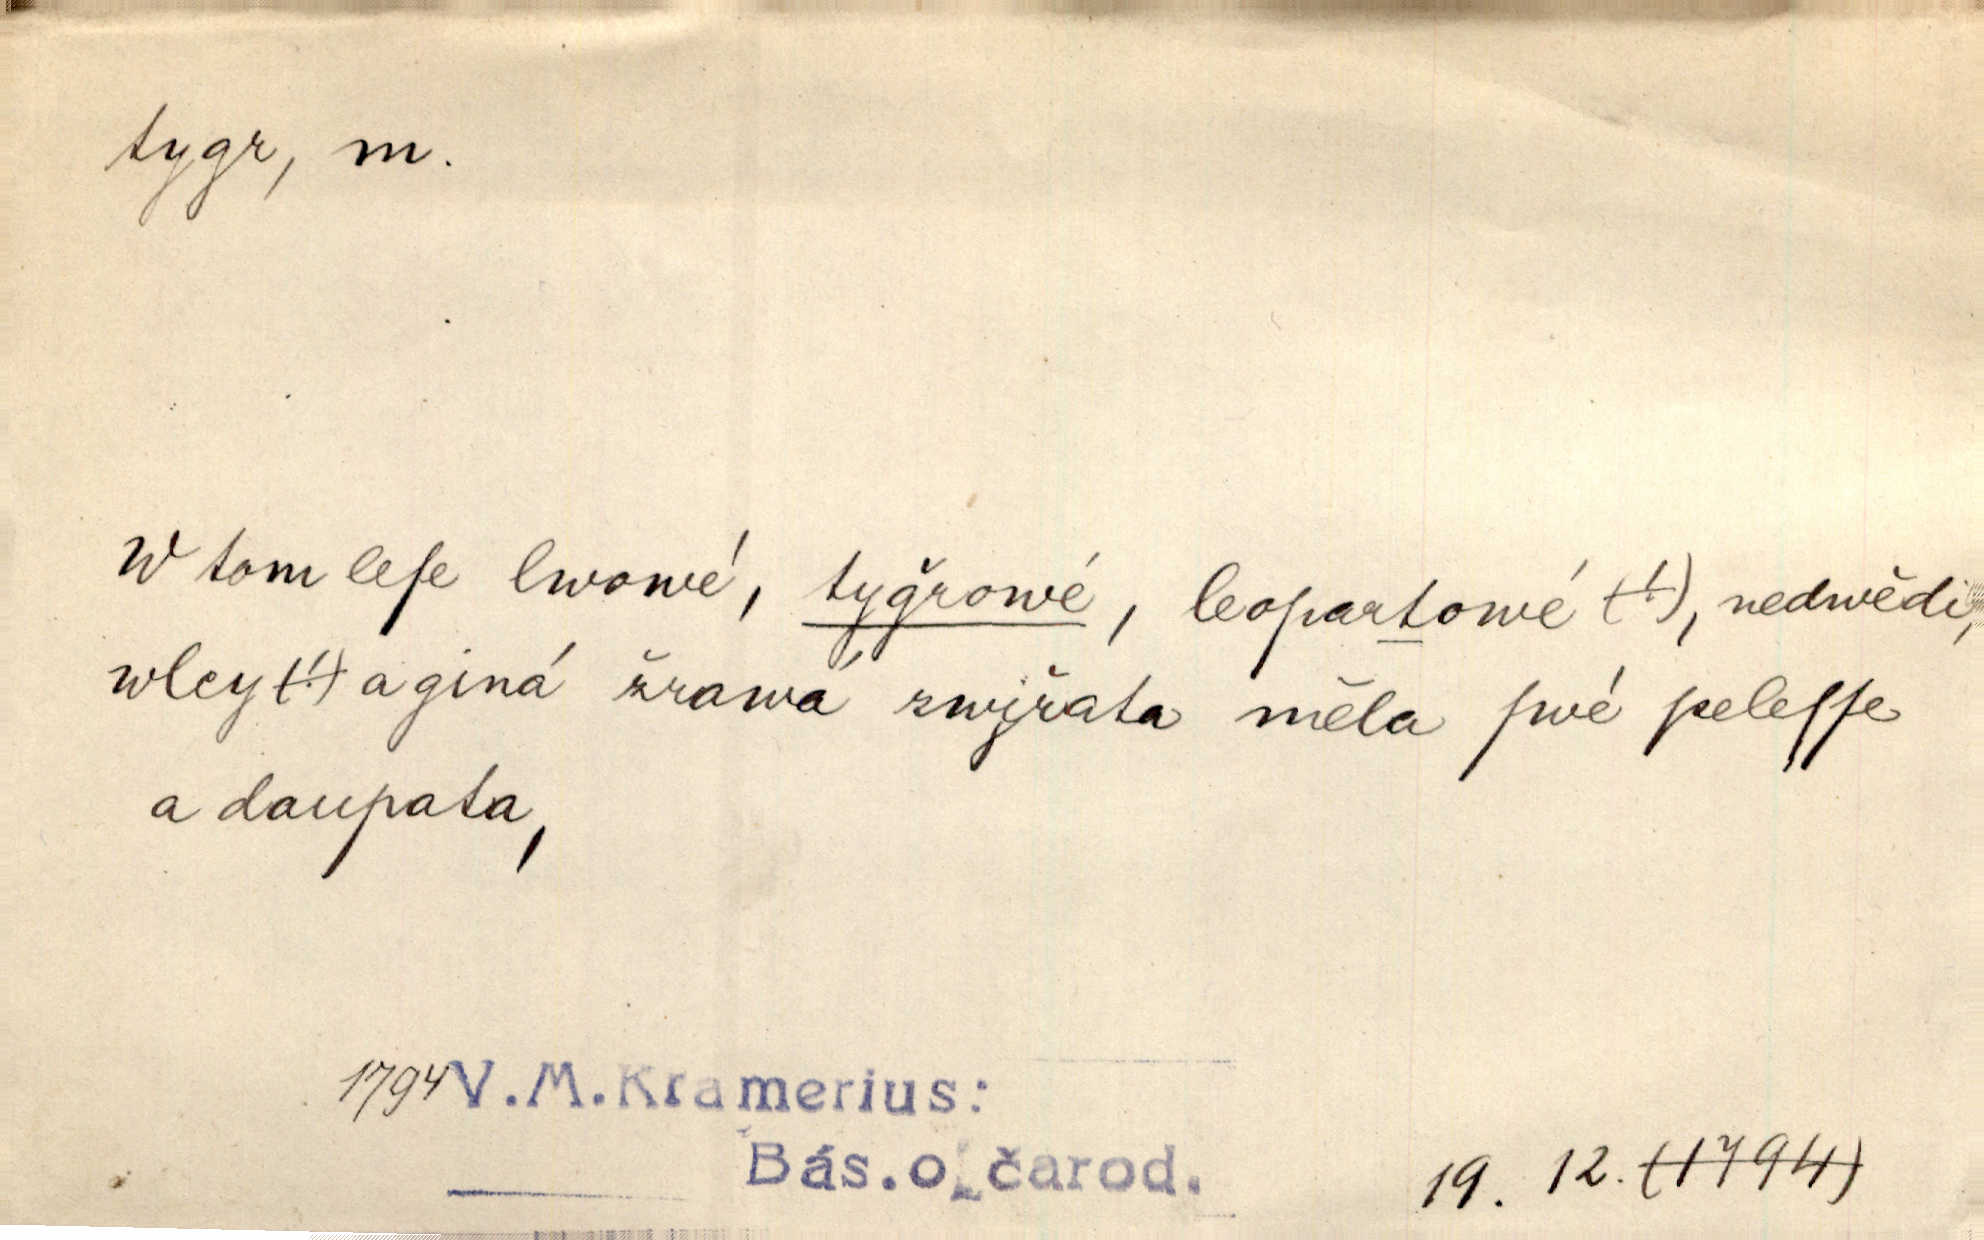 tygr, m.
W tom leſe lwowé, tyğrowé, leopartowé (!), nedwědi,
wlcy (!) a giná žrawá zwjřata měla ſwé peleſſe
a daupata,
1794 V.M.Kramerius:
Bás.o čarod.
19. 12. (1794)